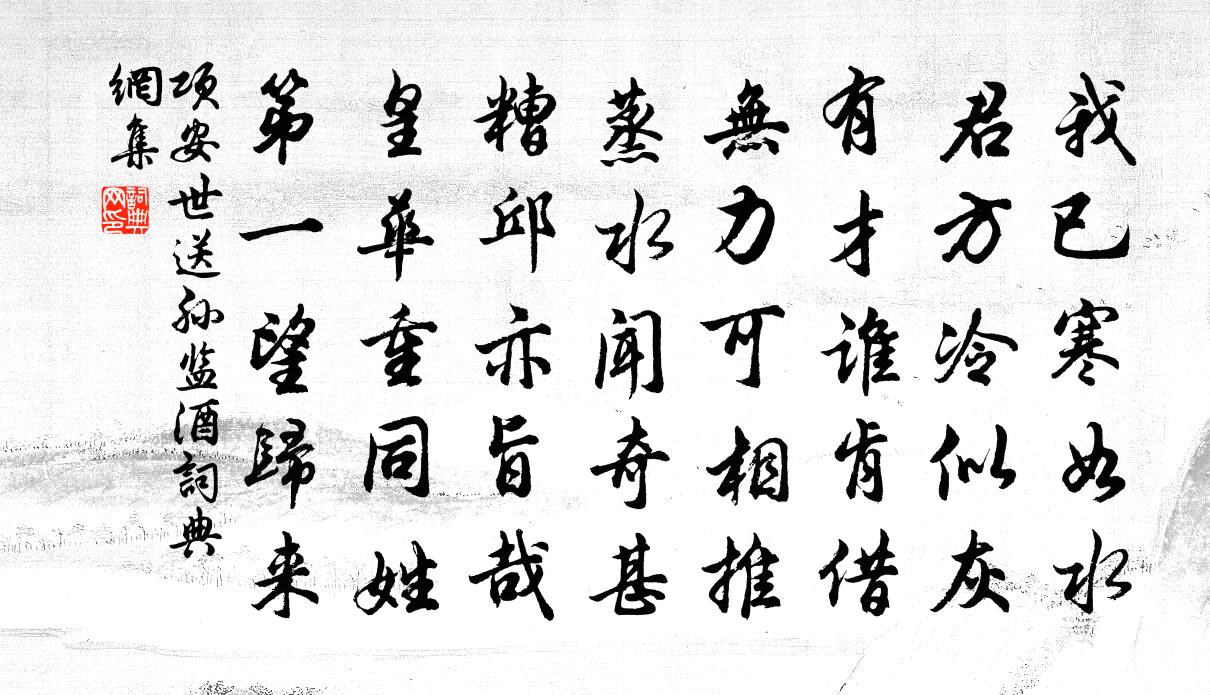 我已寒如水
君方冷似灰
有才谁肯借
無力可相推
蒸水闻奇甚
糟邱亦旨哉
皇华重同姓
第一望歸来
项安世送孙监酒詞典
網集
詞典网印